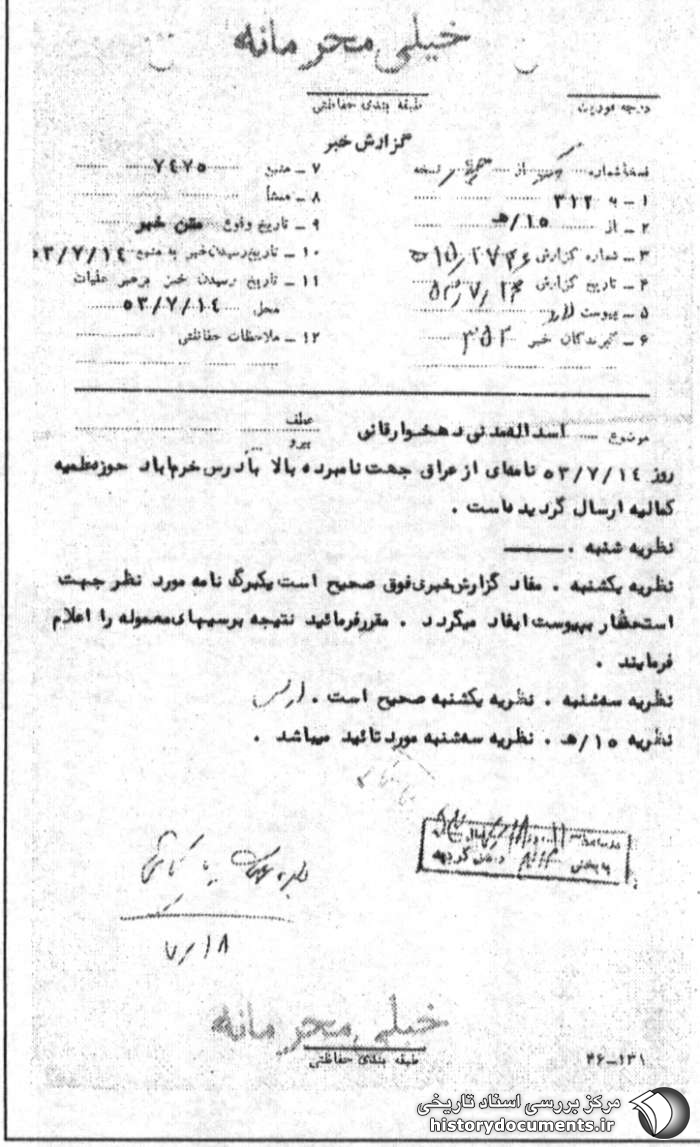 خیلی محرمانه
درجه فوریت
طبقه بندی حفاظتی
گزارش خبر
نسخه شماره از نسخه
۱ - به ۳۱۲
۲ - از ۱۵/هـ
۳ - شماره گزارش
۴ - تاریخ گزارش
۵ - پیوست دارد
۶ - گیرندگان خبر
۷ - منبع ۷۴۷۵
۸ - منشأ
۹ - تاریخ وقوع متن خبر
۱۰ - تاریخ رسیدن خبر به منبع ۵۳/۷/۱۴
۱۱ - تاریخ رسیدن خبر برهبر عملیات
محل ۵۳/۷/۱۴
۱۲ - ملاحظات حفاظتی
موضوع اسداله مدنی دهخوارقانی
عطف
پیرو
روز ۵۳/۷/۱۴ نامه‌ای از عراق جهت نامبرده بالا بآدرس خرم‌آباد حوزه علمیه
کمالیه ارسال گردیده است .
نظریه شنبه .
نظریه یکشنبه . مفاد گزارش خبری فوق صحیح است یکبرگ نامه مورد نظر جهت
استحضار بپیوست ایفاد میگردد . مقررفرمائید نتیجه بررسیهای معموله را اعلام
فرمایند .
نظریه سه‌شنبه . نظریه یکشنبه صحیح است .
نظریه ۱۵/هـ . نظریه سه‌شنبه مورد تائید میباشد .
۷/۱۸
خیلی محرمانه
طبقه بندی حفاظتی
۴۶-۱۳۱
مرکز بررسی اسناد تاریخی
historydocuments.ir